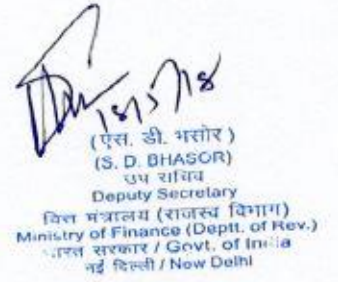 18/5/18
(एस. डी. भसोर)
(S. D. BHASOR)
उप सचिव
Deputy Secretary
वित्त मंत्रालय (राजस्व विभाग)
Ministry of Finance (Deptt. of Rev.)
भारत सरकार / Govt. of India
नई दिल्ली / New Delhi